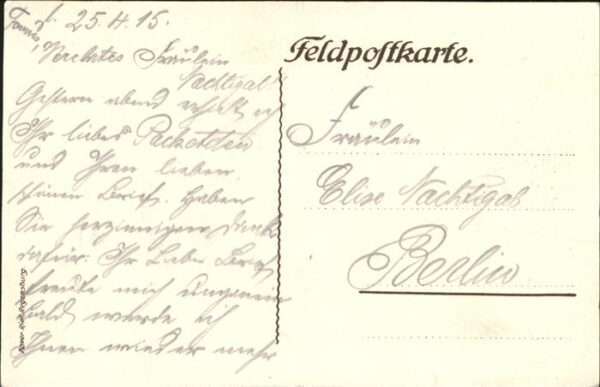 d. 25.4.15.
Verehrtes Fräulein
Nachtigal
Gestern abend erhielt ich
Ihr liebes Packetchen
und Ihren lieben
schönen Brief. Haben
Sie herzinnigen Dank
dafür. Ihr lieber Brief
freute mich ungemein
bald werde ich
Ihnen wieder mehr
Feldpostkarte.
Fräulein
Elise Nachtigal
Berlin